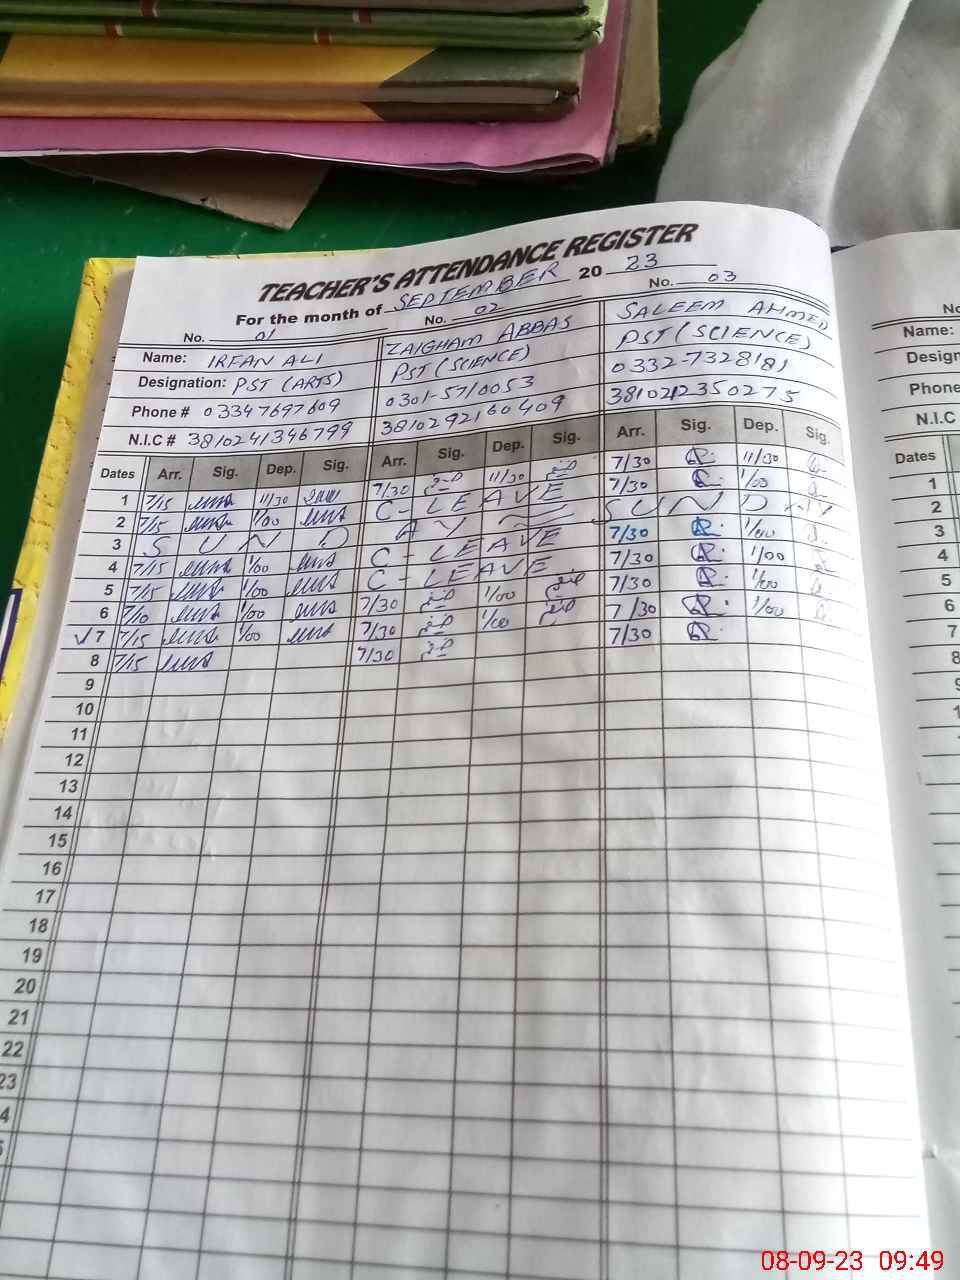 TEACHER'S ATTENDANCE REGISTER
For the month of SEPTEMBER 20 23
No. 01 No. 02 No. 03
Name: IRFAN ALI ZAIGHAM ABBAS SALEEM AHMED
Designation: PST (ARTS) PST (SCIENCE) PST (SCIENCE)
Phone # 03347697609 0301-5710053 0332-7328181
N.I.C # 3810241346799 3810292160409 3810212350275
Dates Arr. Sig. Dep. Sig. Arr. Sig. Dep. Sig. Arr. Sig. Dep. Sig.
1 7/15 11/30 7/30 11/30 7/30 11/30
2 7/15 1/00 C-LEAVE 7/30 1/00
3 SUNDAY SUNDAY
4 7/15 1/00 C-LEAVE 7/30 1/00
5 7/15 1/00 C-LEAVE 7/30 1/00
6 7/10 1/00 7/30 1/00 7/30 1/00
√7 7/15 1/00 7/30 1/00 7/30 1/00
8 7/15 7/30 7/30
9
10
11
12
13
14
15
16
17
18
19
20
21
22
23
4
5
Name:
Design
Phone
N.I.C
Dates
1
2
3
4
5
6
7
8
9
08-09-23 09:49